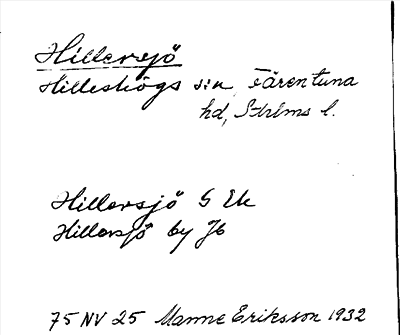 Hillersjö
Hilleshögs s:n, Färentuna
hd, Sthlms l.
Hillersjö G Ek
Hillersjö by Jb
75 NV 25 Manne Eriksson 1932